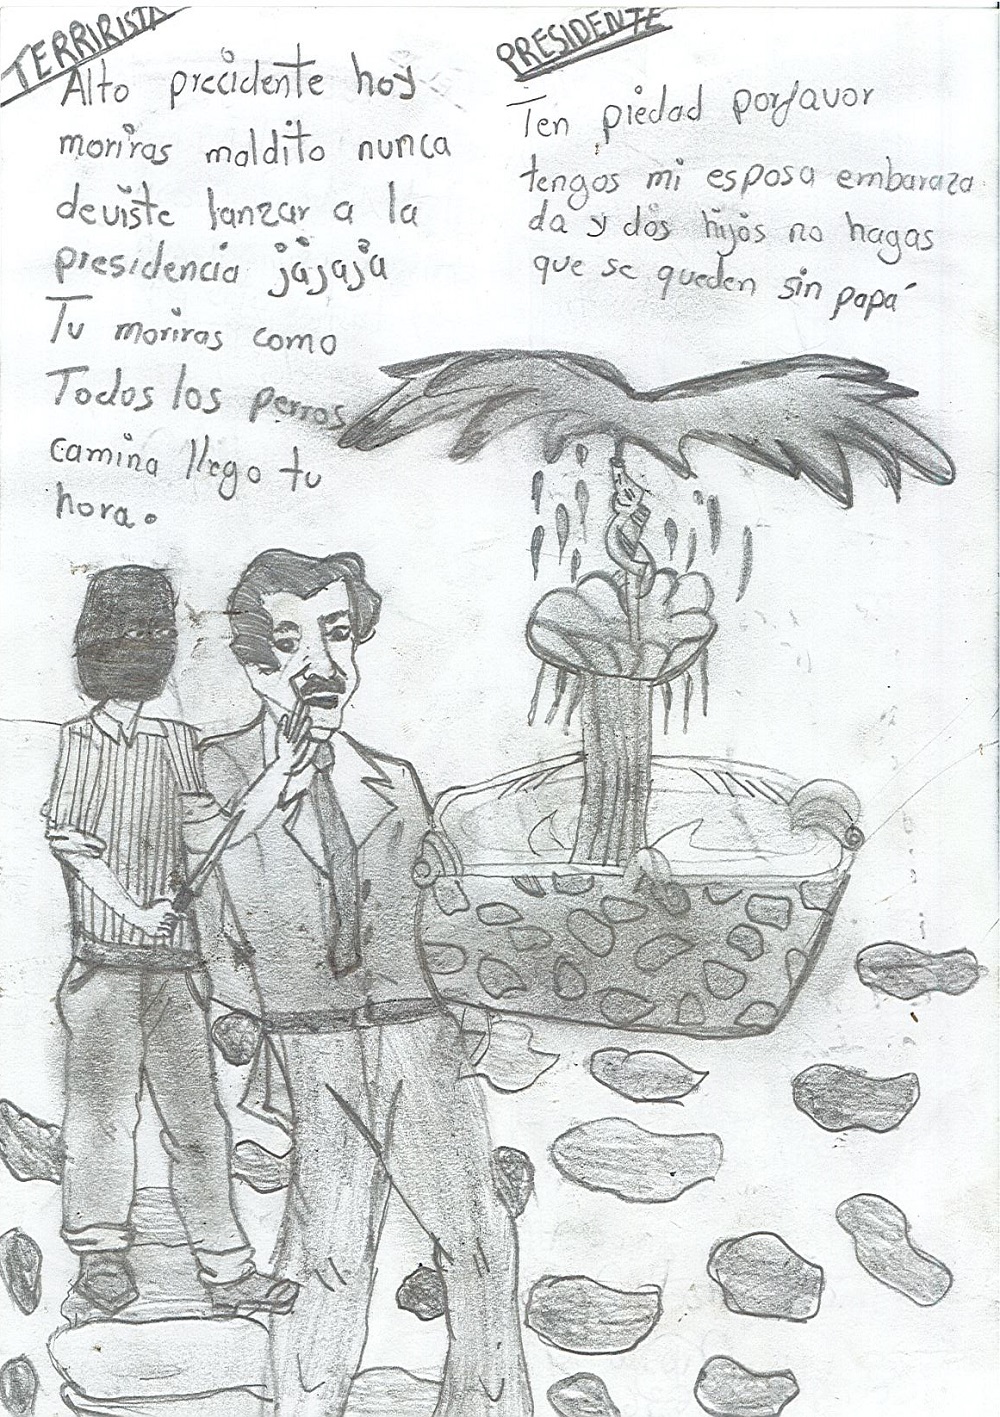 TERRIRISTA
Alto precidente hoy
moriras maldito nunca
deviste lanzar a la
presidencia jajaja
Tu moriras como
Todos los perros
camina llego tu
hora.
PRESIDENTE
Ten piedad porfavor
tengos mi esposa embaraza
da y dos hijos no hagas
que se queden sin papá